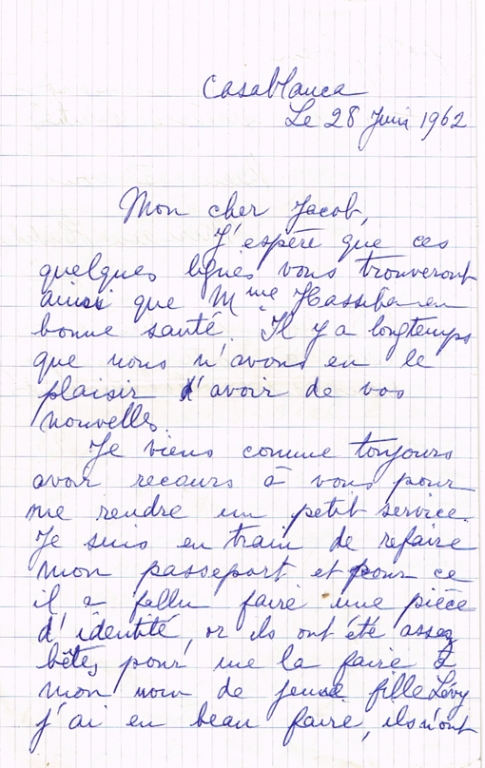 Casablanca
Le 28 Juin 1962
Mon cher Jacob,
J'espère que ces
quelques lignes vous trouveront
ainsi que Mme Hassiba en
bonne santé. Il y a longtemps
que nous n'avons eu le
plaisir d'avoir de vos
nouvelles.
Je viens comme toujours
avoir recours à vous pour
me rendre un petit service.
Je suis en train de refaire
mon passeport et pour ce
il a fallu faire une pièce
d'identité, or ils ont été assez
bêtes pour me la faire à
mon nom de jeune fille Lévy
j'ai eu beau faire, ils n'ont